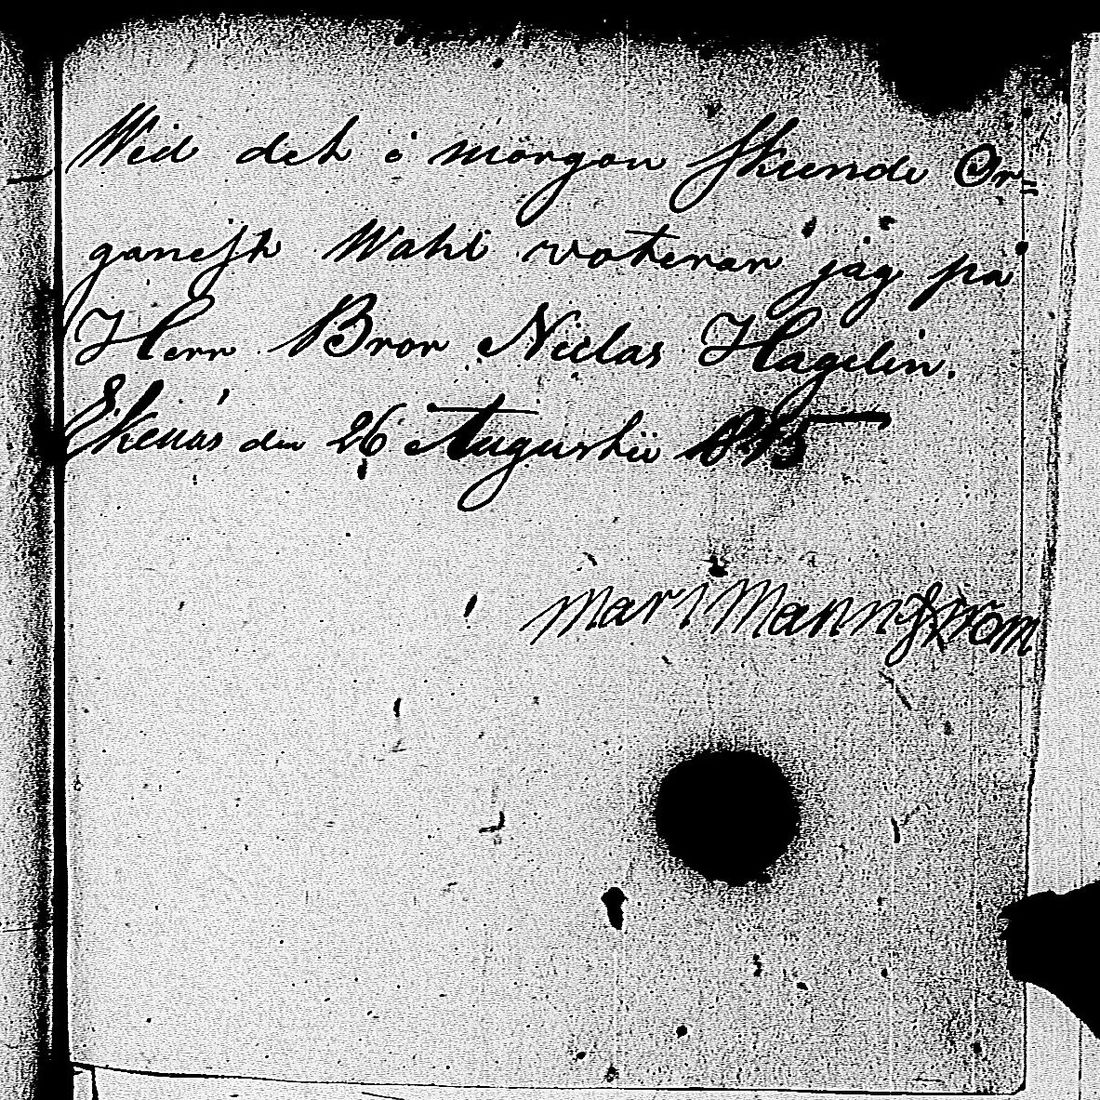 Wid det i morgon skeende Or=
ganist Wahl voterar jag på
Herr Bror Niclas Hagelin.
Ekenäs den 26 Augustii
Mannström